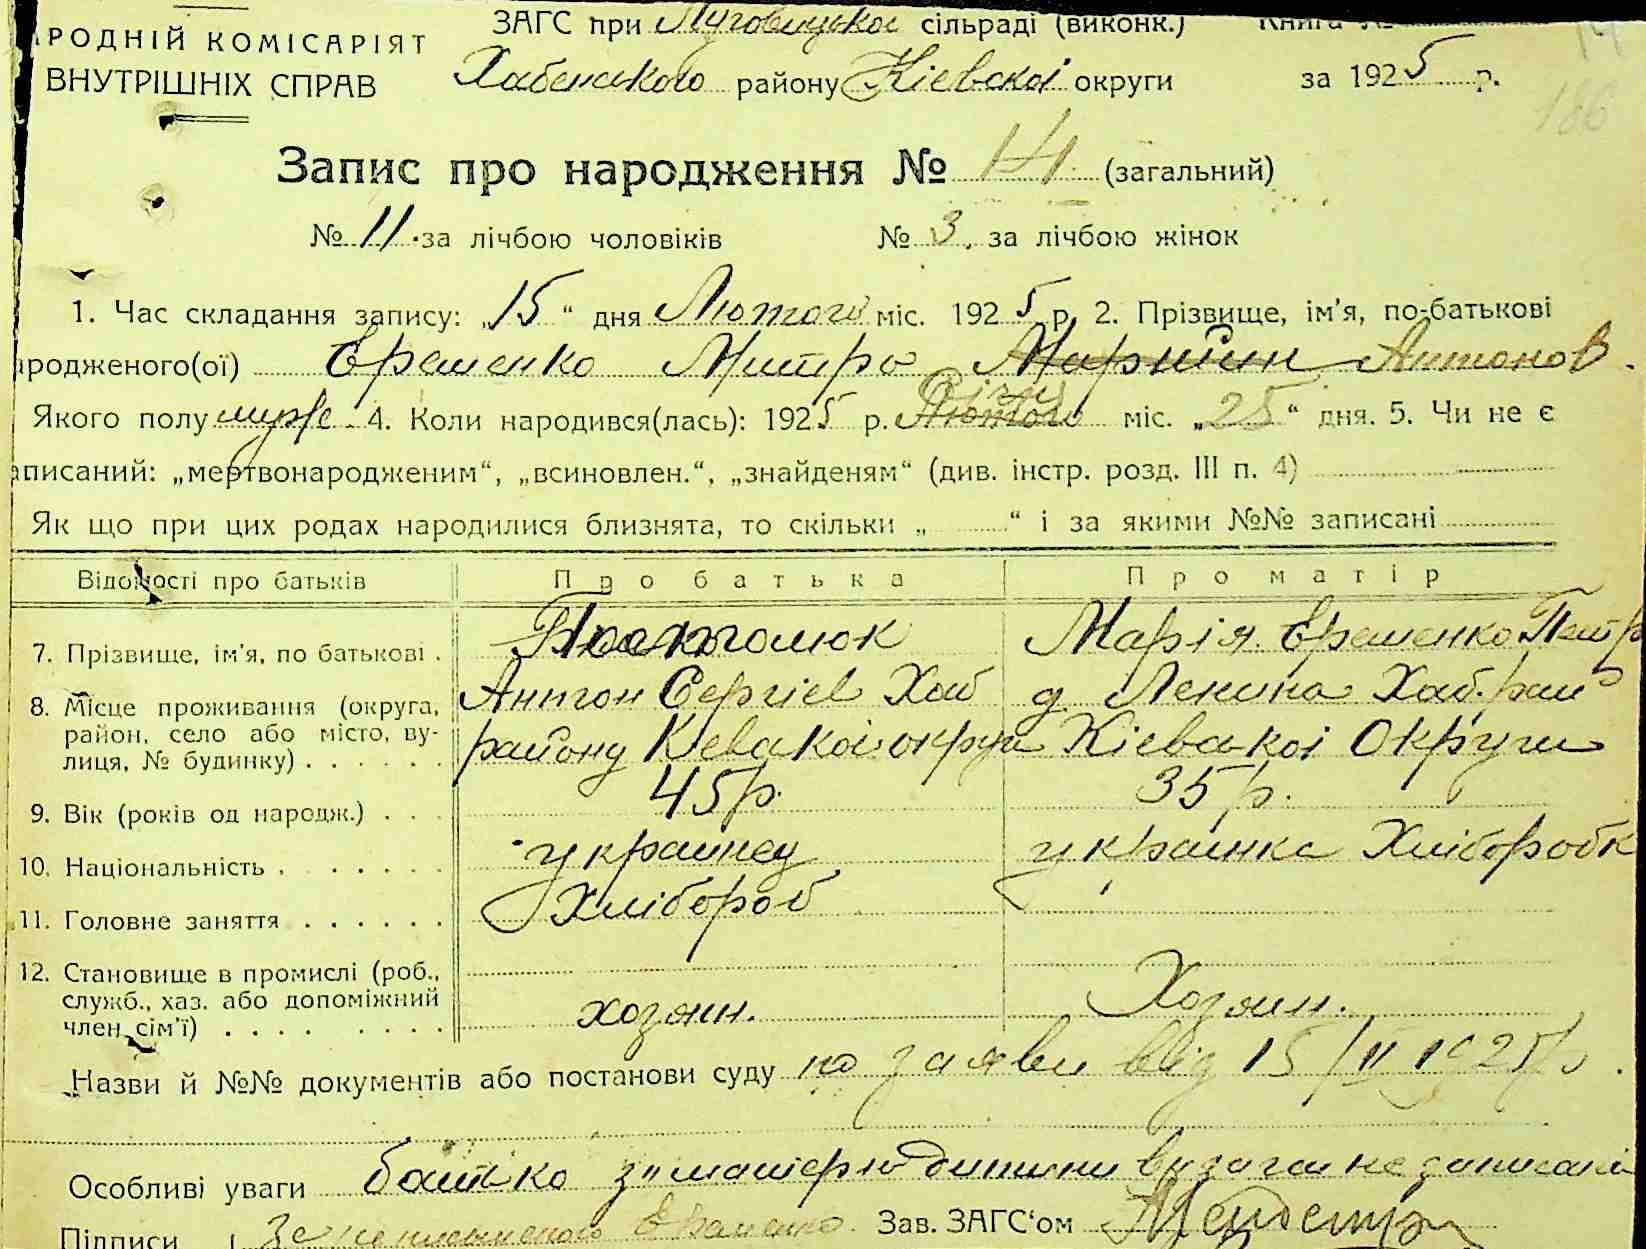 РОДНІЙ КОМІСАРІЯТ
ВНУТРІШНІХ СПРАВ
ЗАГС при сільраді (виконк.) Книга №
Хабенського району Кієвскоі округи за 1925 р.
186
Запис про народження № 14 (загальний)
№ 11 за лічбою чоловіків № 3 за лічбою жінок
1. Час складання запису: „15“ дня Лютого міс. 1925 р. 2. Прізвище, ім'я, по-батькові
ародженого(ої) Єременко Митро Мартин Антонов.
Якого полу муже. 4. Коли народився(лась): 1925 р. Січня Лютого міс. „25“ дня. 5. Чи не є
аписаний: „мертвонародженим“, „всиновлен.“, „знайденям“ (див. інстр. розд. III п. 4)
Як що при цих родах народилися близнята, то скільки „ “ і за якими №№ записані
Відомості про батьків Про батька Про матір
7. Прізвище, ім'я, по батькові . Марія Єременко Петр
8. Місце проживання (округа, район, село або місто, вулиця, № будинку) . . . . . .
Антон Сергієв Хаб д. Ленина Хаб. рай
району Кіевскоі округи Кіевскоі Округи
9. Вік (років од народж.) . . . 45 р. 35 р.
10. Національність . . . . . . . украинец украинка Хліборобк
11. Головне заняття . . . . . . Хлібороб
12. Становище в промислі (роб., служб., хаз. або допоміжний член сім'ї) . . . . . . . . хозяин. Хозяин.
Назви й №№ документів або постанови суду по заяви від 15/II 1925 р.
Особливі уваги батько з матерю дитини в загсі не записані
Підписи За неписьменого Єременко Зав. ЗАГС'ом